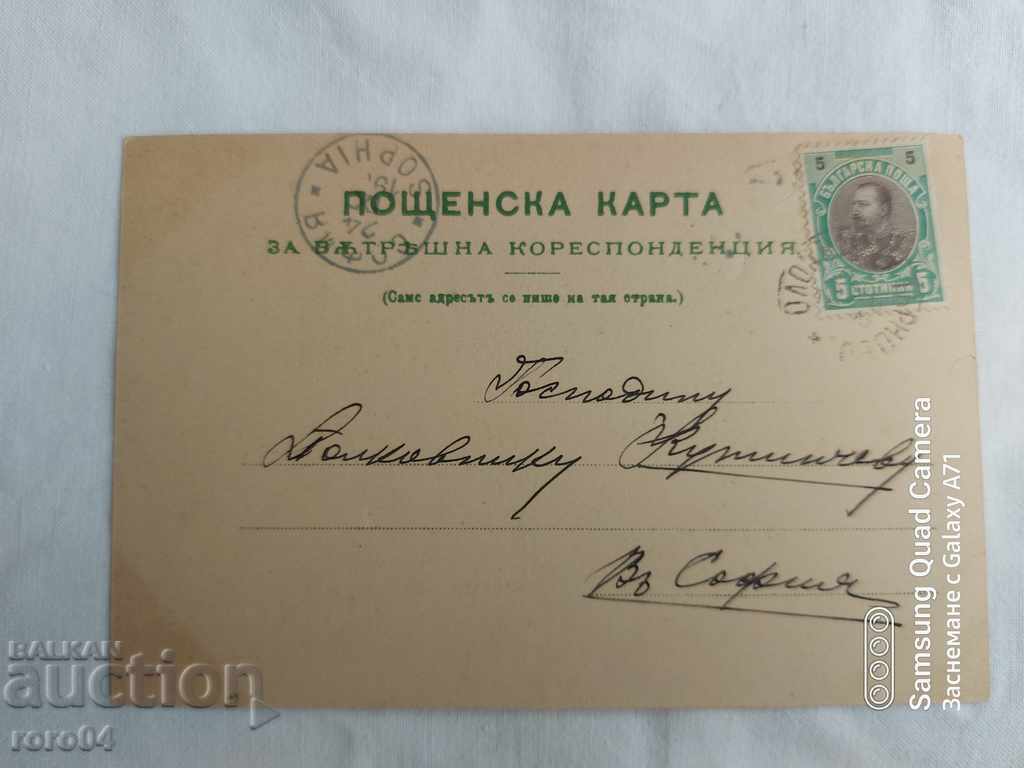 ПОЩЕНСКА КАРТА
ЗА ВѪТРѢШНА КОРЕСПОНДЕНЦИЯ.
(Само адресътъ се пише на тая страна.)
5 5
БЪЛГАРСКА ПОЩА
5 СТОТИНКИ 5
SOPHIA
СОФИЯ
24
Господину
Полковнику Кутинчеву
Въ София
BALKAN
auction
roro04
Samsung Quad Camera
Заснемане с Galaxy A71